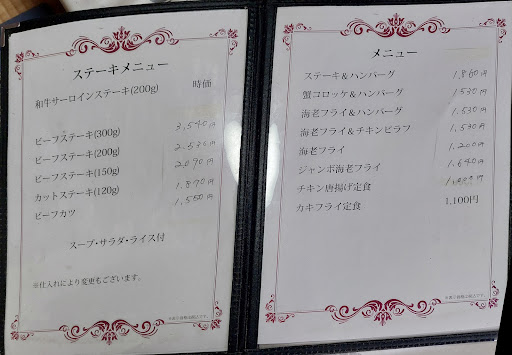 ステーキメニュー
和牛サーロインステーキ(200g) 時価
ビーフステーキ(300g) 3,540円
ビーフステーキ(200g) 2,530円
ビーフステーキ(150g) 2,090円
カットステーキ(120g) 1,870円
ビーフカツ 1,550円
スープ・サラダ・ライス付
※仕入れにより変更もございます。
メニュー
ステーキ&ハンバーグ 1,860円
蟹コロッケ&ハンバーグ 1,530円
海老フライ&ハンバーグ 1,530円
海老フライ&チキンピラフ 1,530円
海老フライ 1,200円
ジャンボ海老フライ 1,640円
チキン唐揚げ定食
カキフライ定食 1,100円